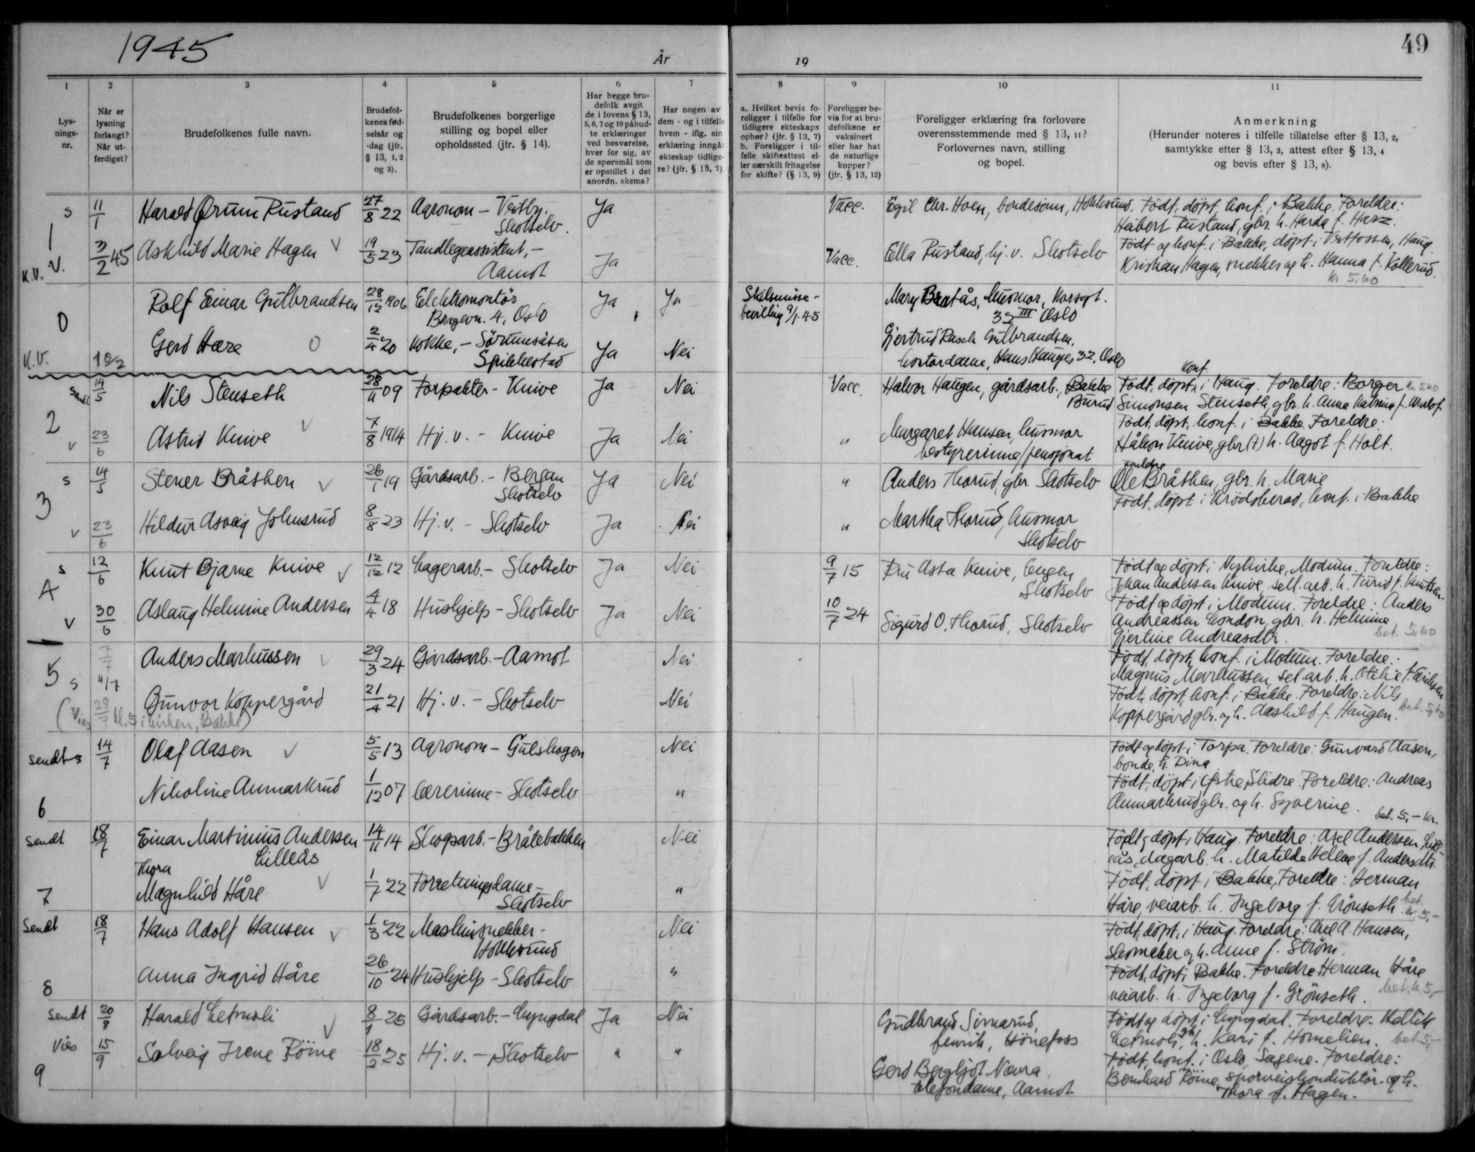 1945
År
19
49
1
2
3
4
5
6
7
8
9
10
11
Lys-
nings-
nr.
Når er
lysning
forlangt?
Når ut-
ferdiget?
Brudefolkenes fulle navn.
Brudefol-
kenes fød-
selsår og
-dag (jfr.
§ 13, 1, 2
og 3).
Brudefolkenes borgerlige
stilling og bopel eller
opholdssted (jfr. § 14).
Har begge bru-
defolk avgit
de i lovens § 13,
5, 6, 7 og 10 påbud-
te erklæringer
ved besvarelse,
hver for sig, av
de spørsmål som
er opstillet i det
anordn. skema?
Har nogen av
dem - og i tilfelle
hvem - iflg. sin
erklæring inngått
ekteskap tidlige-
re? (jfr. § 13, 7).
a. Hvilket bevis fo-
religger i tilfelle for
tidligere ekteskaps
ophør? (jfr. § 13, 7)
b. Foreligger i til-
felle skifteattest el-
ler særskilt fritagelse
for skifte? (§ 13, 9)
Foreligger be-
vis for at bru-
defolkene er
vaksinert
eller har hat
de naturlige
kopper?
(jfr. § 13, 12)
Foreligger erklæring fra forlovere
overensstemmende med § 13, 11?
Forlovernes navn, stilling
og bopel.
Anmerkning
(Herunder noteres i tilfelle tillatelse efter § 13, 2,
samtykke efter § 13, 3, attest efter § 13, 4
og bevis efter § 13, 8).
1 s 11/1 Harald Ørum Rustand 27/8 22 Agronom - Vestby. Skotselv. Ja Vacc. Egil Chr. Hoen, bondesønn, Hokksund. Født, døpt, konf. i Bakke. Foreldre:
Rustand, gbr. h. Harda f. Harz.
K.V. v. 3/2 45 Askhild Marie Hagen v 19/5 23 Tandlegeassistent, - Aamot Ja Vacc. Ella Rustand, hj. v. Skotselv Født og konf. i Bakke, døpt i Vestfossen, Haug.
Kristian Hagen, snekker og h. Hanna f. Kollerud.
kr 5.60
0 Rolf Einar Gulbrandsen 28/12 1906 Elektromontør Ja Ja Skilsmisse- Mary Bratås, husmor,
4, Oslo bevilling 9/1 45 32 III Oslo
K.V. 10/2 Gerd Hære 0 2/4 20 Kokke, - Ja Nei Gjertrud Rasch Gulbrandsen,
Spikkestad kontordame, Hans Hauges 32, Oslo
2 Sendt 14/5 Nils Stenseth 28/11 09 Forpakter - Knive Ja Nei Vacc. Halvor Haugen, gårdsarb., Burud Født, døpt, konf. i Haug. Foreldre: Borger kr 5.60
Simonsen Stenseth, gbr. h. Anna
v 23/6 Astrid Knive v 7/8 1914 Hj. v. - Knive Ja Nei " Margaret Hansen, husmor Født, døpt, konf. i Bakke. Foreldre:
bestyrerinne/pensjonat Håkon Knive, gbr (+) h. Aagot f. Holt.
3 s 14/5 Stener Bråthen v 26/1 19 Gårdsarb. - Bergan Skotselv Ja Nei " Anders Thorud, gbr Skotselv foreldre Ole Bråthen, gbr. h. Marie
Født, døpt i Krødsherad, konf. i Bakke
v 23/6 Hildur Aslaug Johnsrud 8/8 23 Hj. v. - Skotselv Ja Nei " Martha Thorud, husmor
Skotselv
4 s 12/6 Knut Bjarne Knive v 12/12 12 Lagerarb. - Skotselv Ja Nei 9/7 15 Fru Asta Knive, Lugen Skotselv Født og døpt i Nykirke, Modum. Foreldre:
Johan Andersen Knive, sell. arb. h. Turid f. Knutsen.
v 30/6 Aslaug Helmine Andersen 4/4 18 Hushjelp - Skotselv Ja Nei 10/7 24 Sigurd O. Thorud, Skotselv Født og døpt i Modum. Foreldre: Anders
Andreassen London, gbr. h. Helmine
Gjertine Andreasdtr. bet. 5.60
5 7/7 Anders Markussen v 29/3 24 Gårdsarb. - Aamot Nei Født, døpt, konf. i Modum. Foreldre:
Magnus Markussen, sel. arb. h. Otelie f. Eriksen
s 11/7 Gunvor Koppergård 21/4 21 Hj. v. - Skotselv Nei Født, døpt, konf. i Bakke. Foreldre: Nils
(Vies 28/7 kl. 5 i kirken, Bakke) Koppergård gbr. og h. Aashild f. Haugen. bet. 5,60
6 sendt s 14/7 Olaf Aasen v 5/5 13 Agronom - Gulskogen Nei Født og døpt i Torpa. Foreldre: Gunvard Aasen,
bonde, h. Dina
Nikoline Aunmarkrud 1/12 07 Lærerinne - Skotselv " Født, døpt, i Østre Slidre. Foreldre: Andreas
Aunmarkrud gbr. og h. Syverine. bet. 5,- kr.
7 sendt 18/7 Einar Martinius Andersen Lilleås 14/11 14 Skogsarb. - Bråtebakken Nei Født og døpt i Haug. Foreldre: Axel Andersen Lille-
ås, dagarb. h. Matilde Helene f. Andersdtr.
Thora Magnhild Håre v 1/7 22 Forretningsdame - Skotselv " Født, døpt i Bakke, Foreldre: Herman
Håre, veiarb. h. Ingeborg f. Grønseth. bet. kr. 5,-
8 Sendt 18/7 Hans Adolf Hansen v 1/3 22 Maskinsnekker - Hokksund Nei Født, døpt, i Haug. Foreldre: Axel A. Hansen,
skomaker og h. Anne f. Strøm.
Anna Ingrid Håre 26/10 24 Hushjelp - Skotselv " Født, døpt, i Bakke. Foreldre Herman Håre
veiarb. h. Ingeborg f. Grønseth. bet. kr. 5,-
9 Sendt 20/8 Harald Letmoli v 8/1 25 Gårdsarb. - Lyngdal Ja Nei Gudbrand Simarud, Født og døpt i Lyngdal. Foreldre: Kittil
fenrik, Hönefoss Letmoli, h. Kari f. Homelien. bet. 5,-
Vies 15/9 Solveig Irene Röine 18/2 25 Hj. v. - Skotselv " " Gerd Bergljot Naura, Født, konf. i Oslo Sagene. Foreldre:
telefondame, Aamot Bernhard Röine, sporveiskonduktör. og h.
Thora f. Hagen.